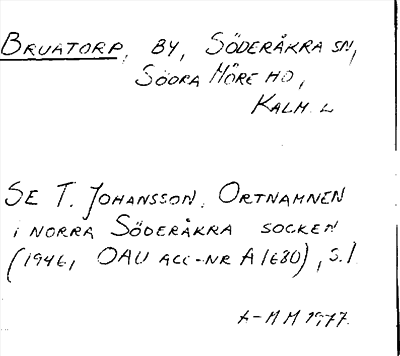 BRUATORP, BY, SÖDERÅKRA SN,
SÖDRA MÖRE HD,
KALM. L
SE T. JOHANSSON, ORTNAMNEN
I NORRA SÖDERÅKRA SOCKEN
(1946, OAU ACC-NR A 1680), S. 1
A-M M 1977